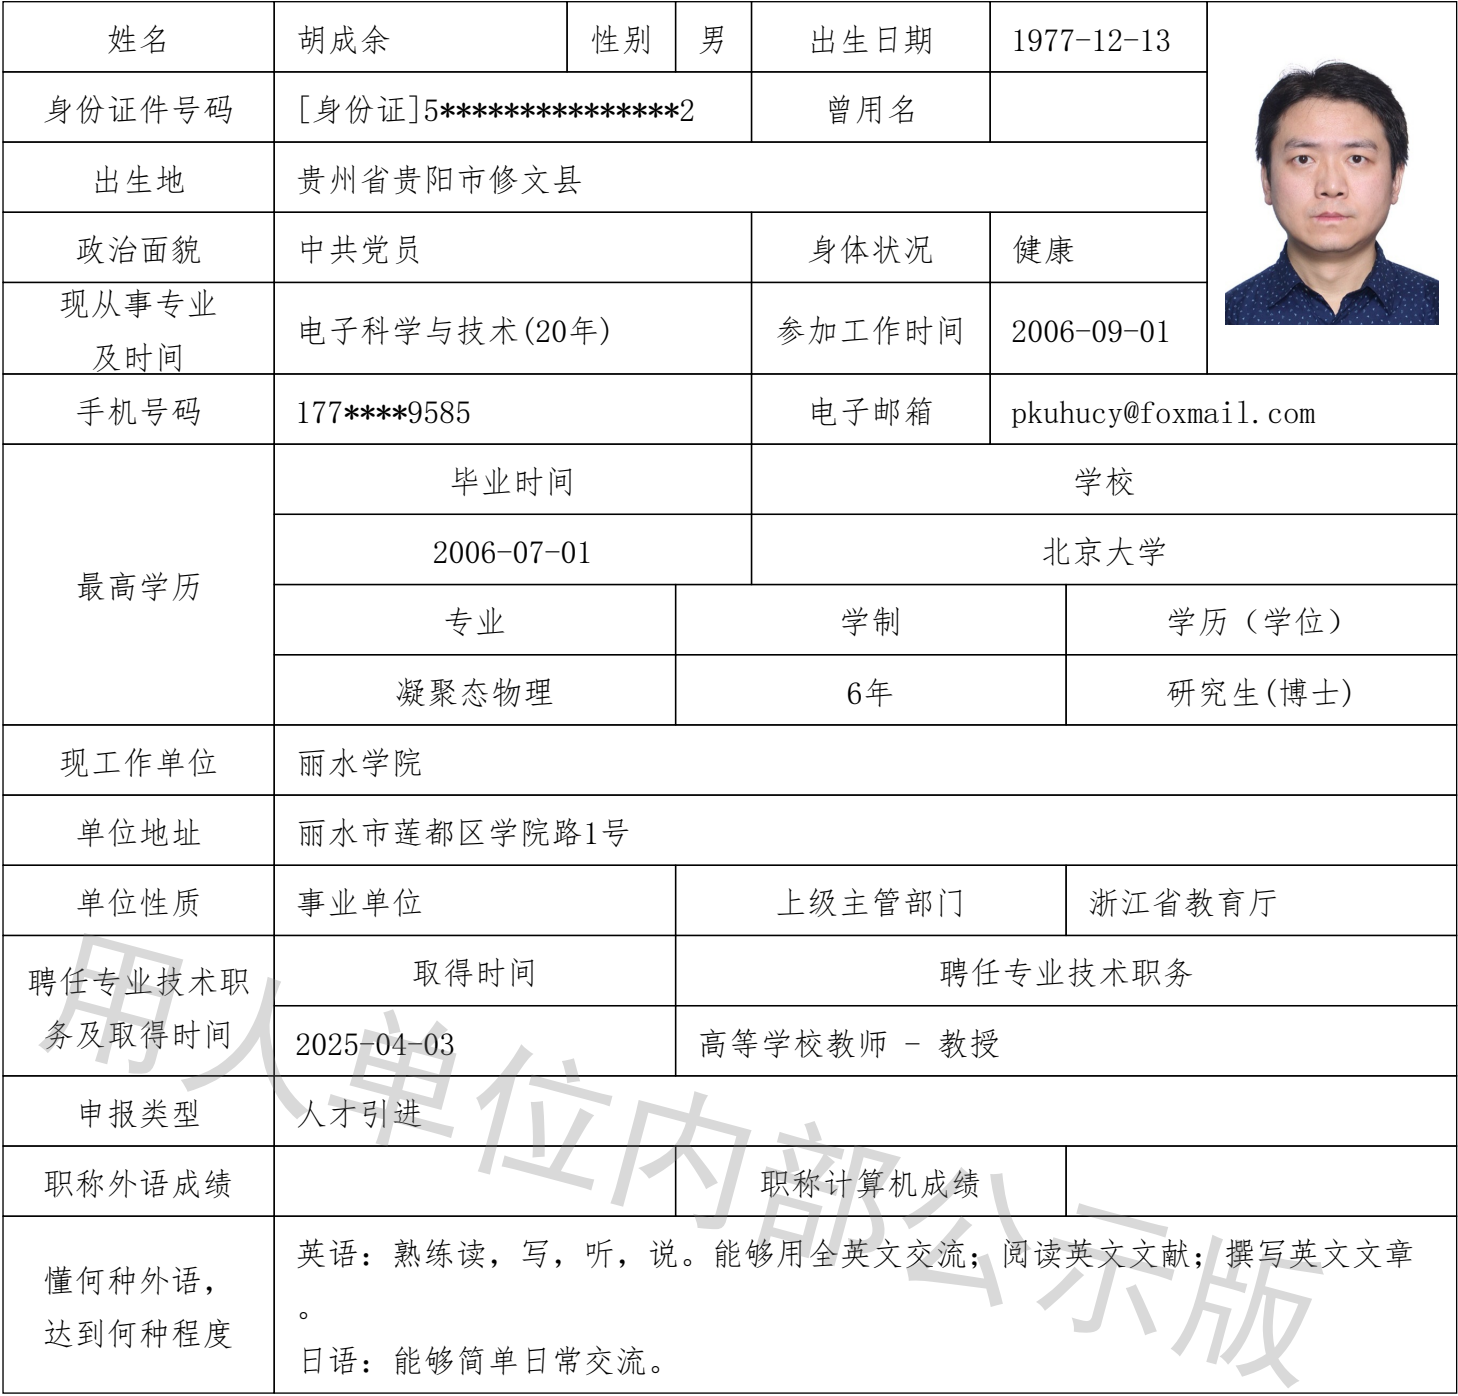 姓名 胡成余 性别 男 出生日期 1977-12-13
身份证件号码 [身份证]5***************2 曾用名
出生地 贵州省贵阳市修文县
政治面貌 中共党员 身体状况 健康
现从事专业
及时间 电子科学与技术(20年) 参加工作时间 2006-09-01
手机号码 177****9585 电子邮箱 pkuhucy@foxmail.com
最高学历
毕业时间 学校
2006-07-01 北京大学
专业 学制 学历（学位）
凝聚态物理 6年 研究生(博士)
现工作单位 丽水学院
单位地址 丽水市莲都区学院路1号
单位性质 事业单位 上级主管部门 浙江省教育厅
聘任专业技术职
务及取得时间
取得时间 聘任专业技术职务
2025-04-03 高等学校教师 - 教授
申报类型 人才引进
职称外语成绩 职称计算机成绩
懂何种外语，
达到何种程度
英语：熟练读，写，听，说。能够用全英文交流；阅读英文文献；撰写英文文章
。
日语：能够简单日常交流。
用人单位内部公示版